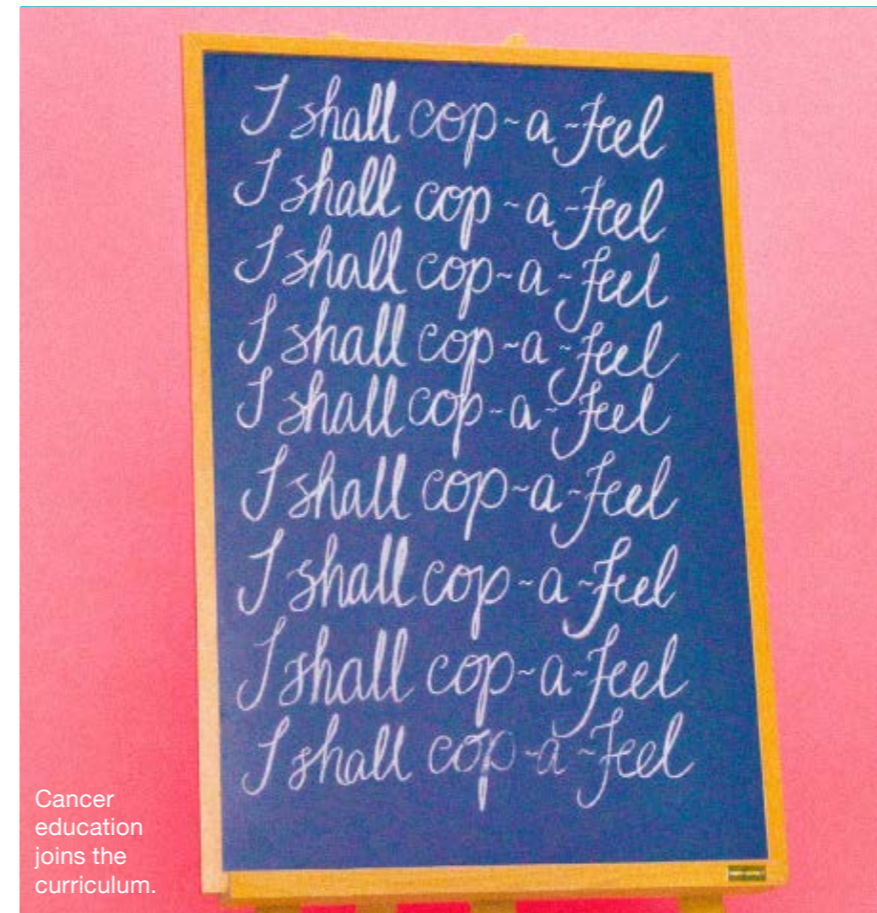 I shall cop~a~feel
I shall cop~a~feel
I shall cop~a~feel
I shall cop~a~feel
I shall cop~a~feel
I shall cop~a~feel
I shall cop~a~feel
I shall cop~a~feel
I shall cop~a~feel
Cancer
education
joins the
curriculum.